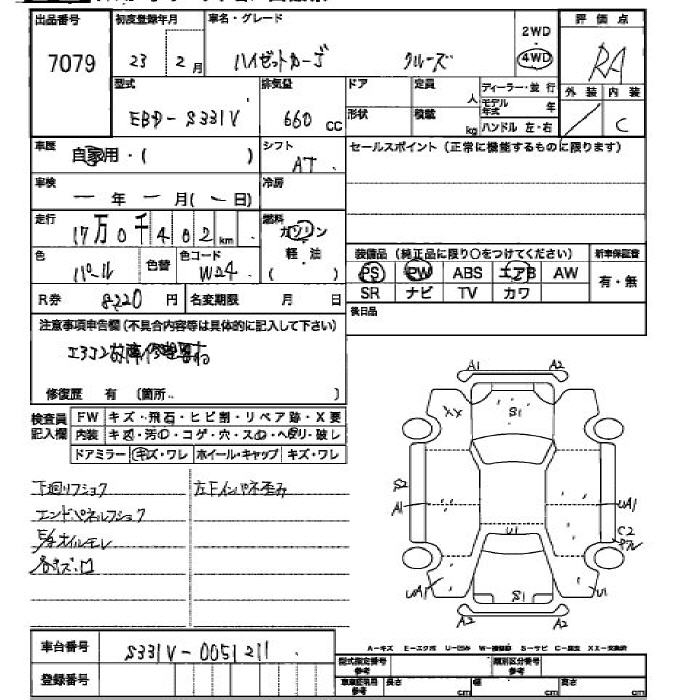 出品番号 初度登録年月 車名・グレード 評価点
7079 23 2月 ハイゼットカーゴ クルーズ 2WD 4WD RA
外装 内装
/ C
型式 排気量 ドア 定員 人 ディーラー・並行
EBD-S331V 660 CC 形状 積載 kg モデル年式 年
ハンドル 左・右
車歴 自家用・( ) シフト AT セールスポイント(正常に機能するものに限ります)
車検 ー年 ー月(ー日) 冷房
走行 17万0千402km 燃料 ガソリン 軽油 ( )
色 パール 色替 色コード W24
装備品(純正品に限り○をつけてください) 新車保証書
PS PW ABS エアB AW 有・無
SR ナビ TV カワ
R券 8220円 名変期限 月 日
後日品
注意事項申告欄(不具合内容等は具体的に記入して下さい)
エアコン故障
修復歴 有 (箇所. )
検査員記入欄 FW キズ・飛石・ヒビ割・リペア跡・X要
内装 キズ・汚れ・コゲ・穴・スレ・ヘタリ・破レ
ドアミラー キズ・ワレ ホイール・キャップ キズ・ワレ
下廻リフショク 左Fインパネ歪み
エンドパネルフショク
オイルモレ
A1 A2
XX S1
S2
A1 UA1
U1 C2
UA1 S1 U1
A2 A2
A-キズ E-エクボ U-凹み W-補修跡 S-サビ C-腐食 XX-交換済
車台番号 S331V-0051211
登録番号
型式指定番号 参考 類別区分番号 参考
車庫証明用 参考 長さ cm 幅 cm 高さ cm